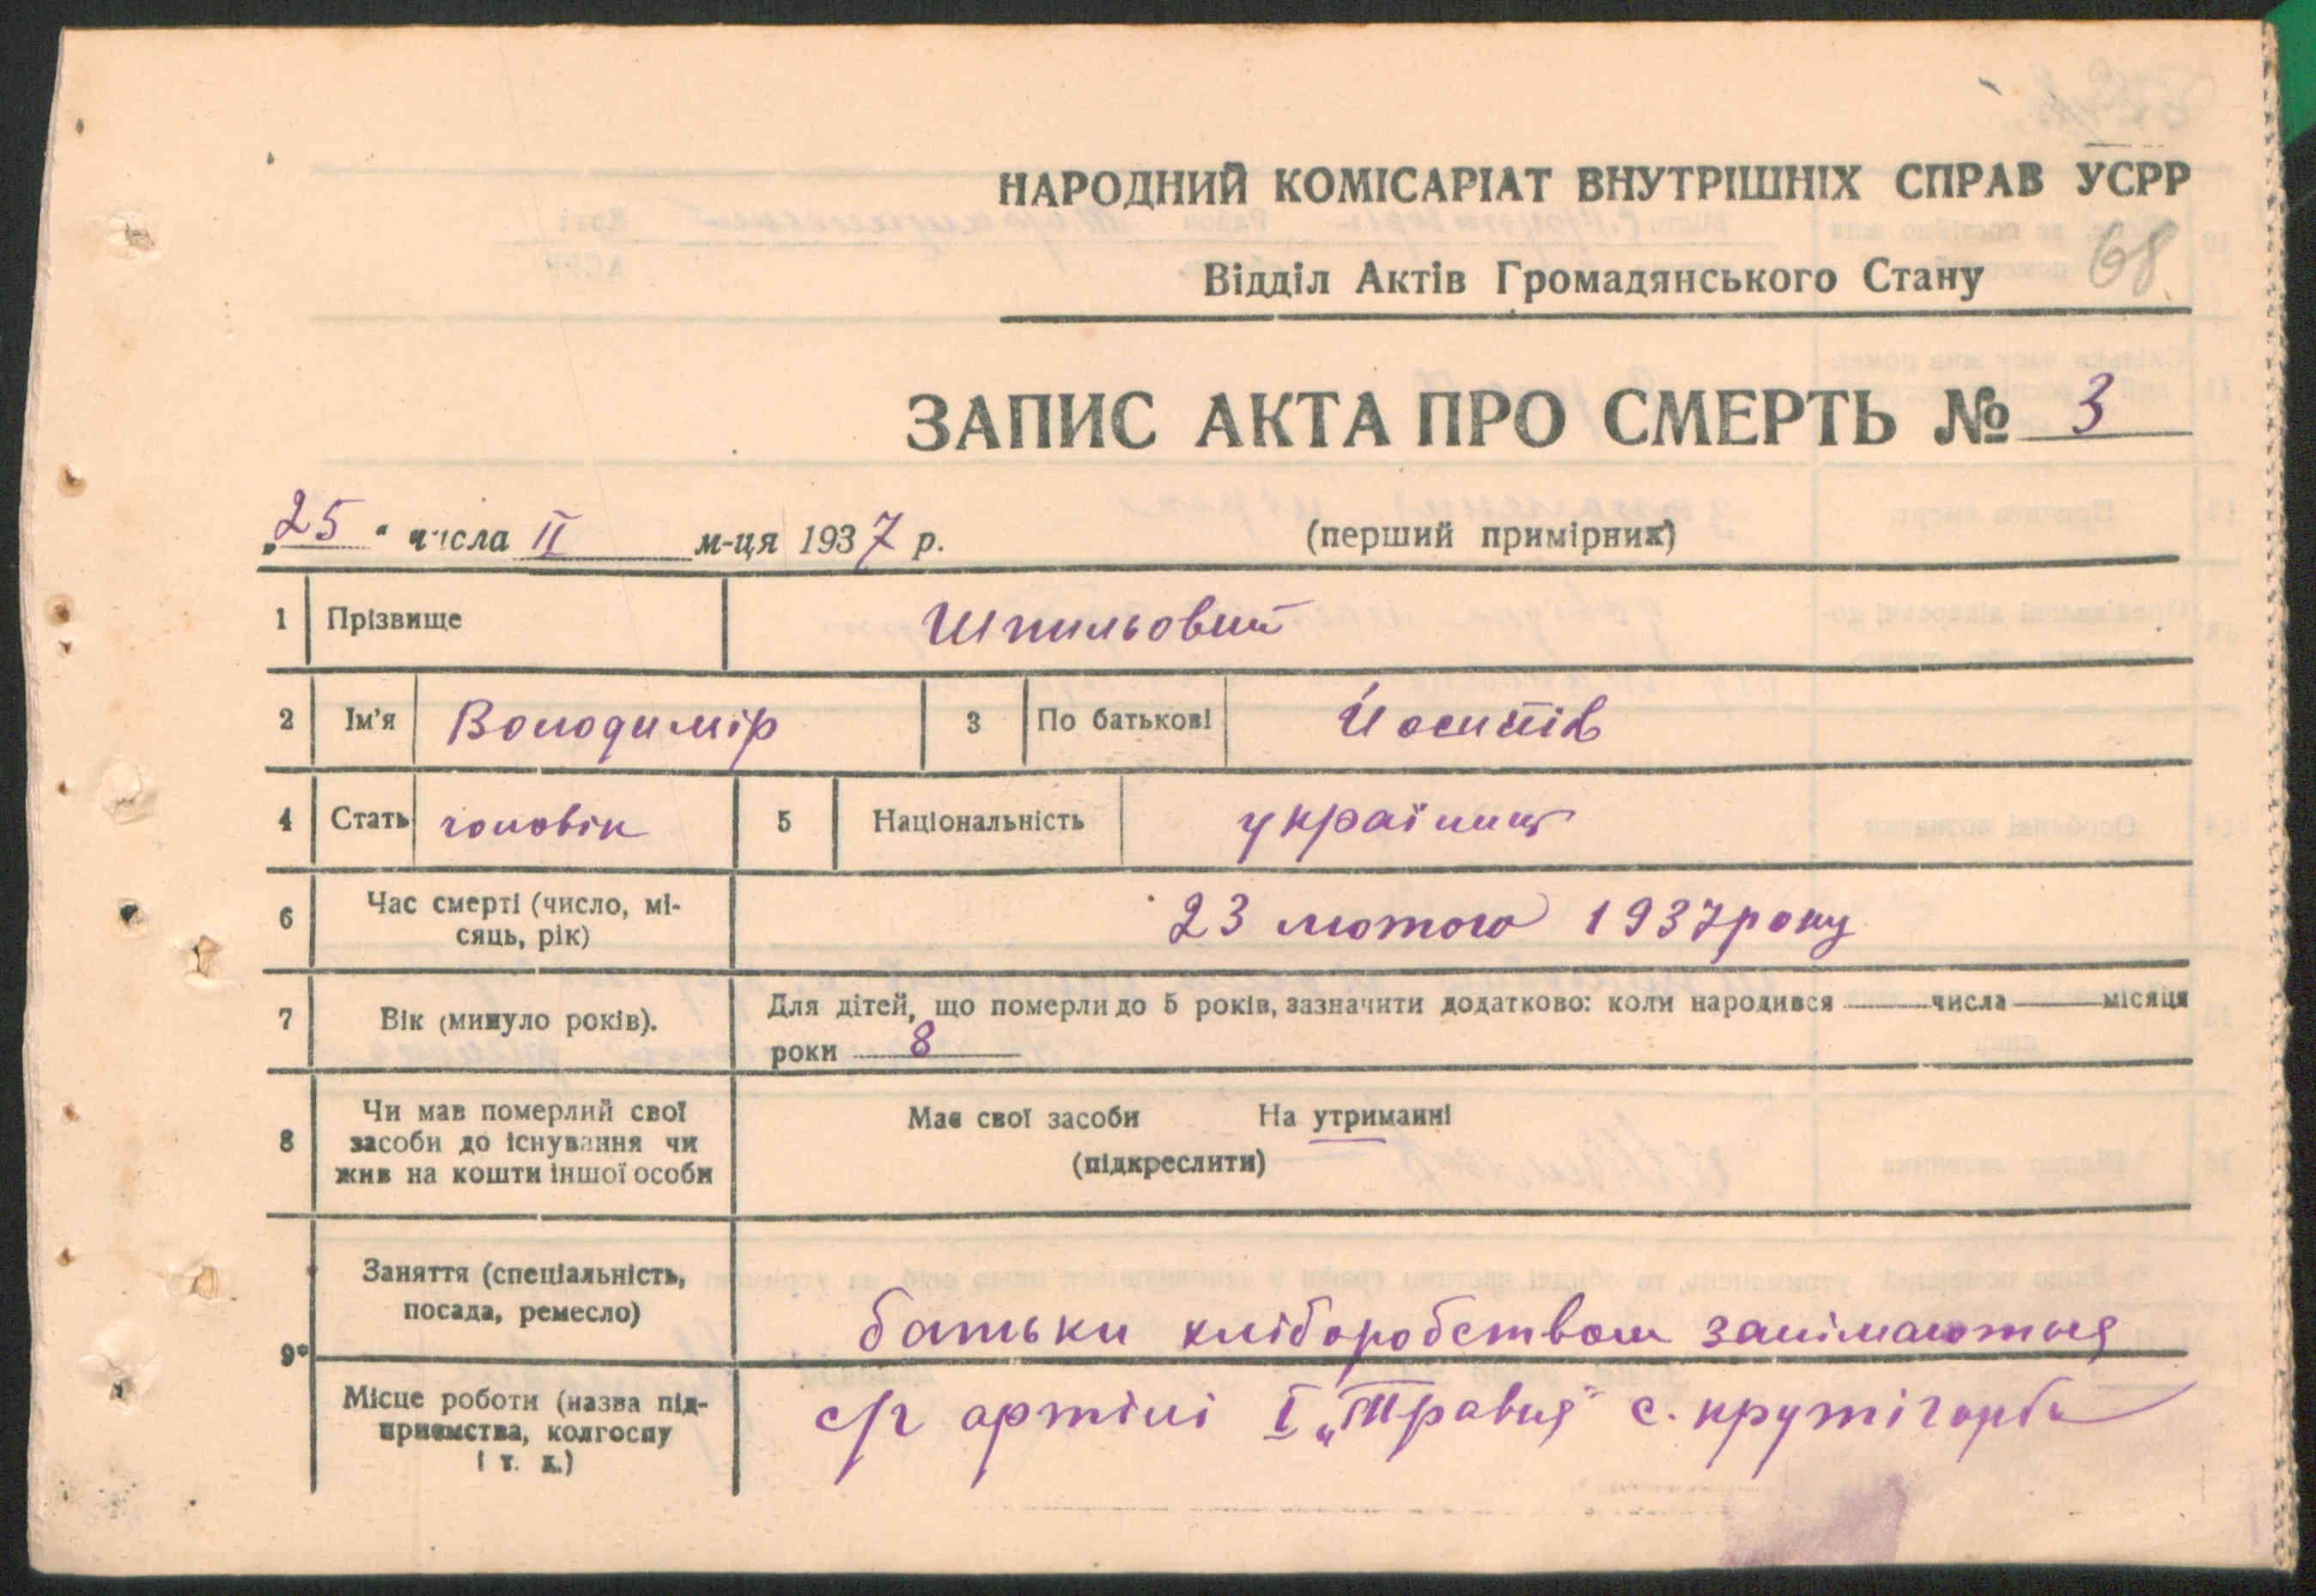 НАРОДНИЙ КОМІСАРІАТ ВНУТРІШНІХ СПРАВ УСРР
Відділ Актів Громадянського Стану
68
ЗАПИС АКТА ПРО СМЕРТЬ № 3
„25“ числа II м-ця 1937 р. (перший примірник)
1 Прізвище Шпильовий
2 Ім'я Володимір 3 По батькові Йосипів
4 Стать чоловік 5 Національність українец
6 Час смерті (число, мі-
сяць, рік) 23 лютого 1937 року
7 Вік (минуло років). Для дітей, що померли до 5 років, зазначити додатково: коли народився — числа — місяця
роки 8
8 Чи мав померлий свої
засоби до існування чи
жив на кошти іншої особи
Має свої засоби На утриманні
(підкреслити)
9* Заняття (спеціальність,
посада, ремесло) батьки хліборобством занімаються
Місце роботи (назва під-
приємства, колгоспу
і т. д.) с/г артілі I „Травня" с. крутігорби